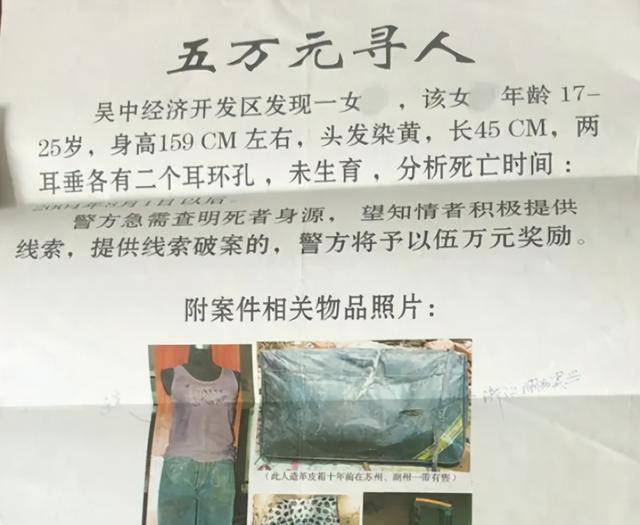 五万元寻人
吴中经济开发区发现一女 ，该女 年龄 17-
25岁，身高159 CM 左右，头发染黄，长45 CM，两
耳垂各有二个耳环孔，未生育，分析死亡时间：
警方急需查明死者身源，望知情者积极提供
线索，提供线索破案的，警方将予以伍万元奖励。
附案件相关物品照片：
（此人造革皮箱十年前在苏州、湖州一带有售）